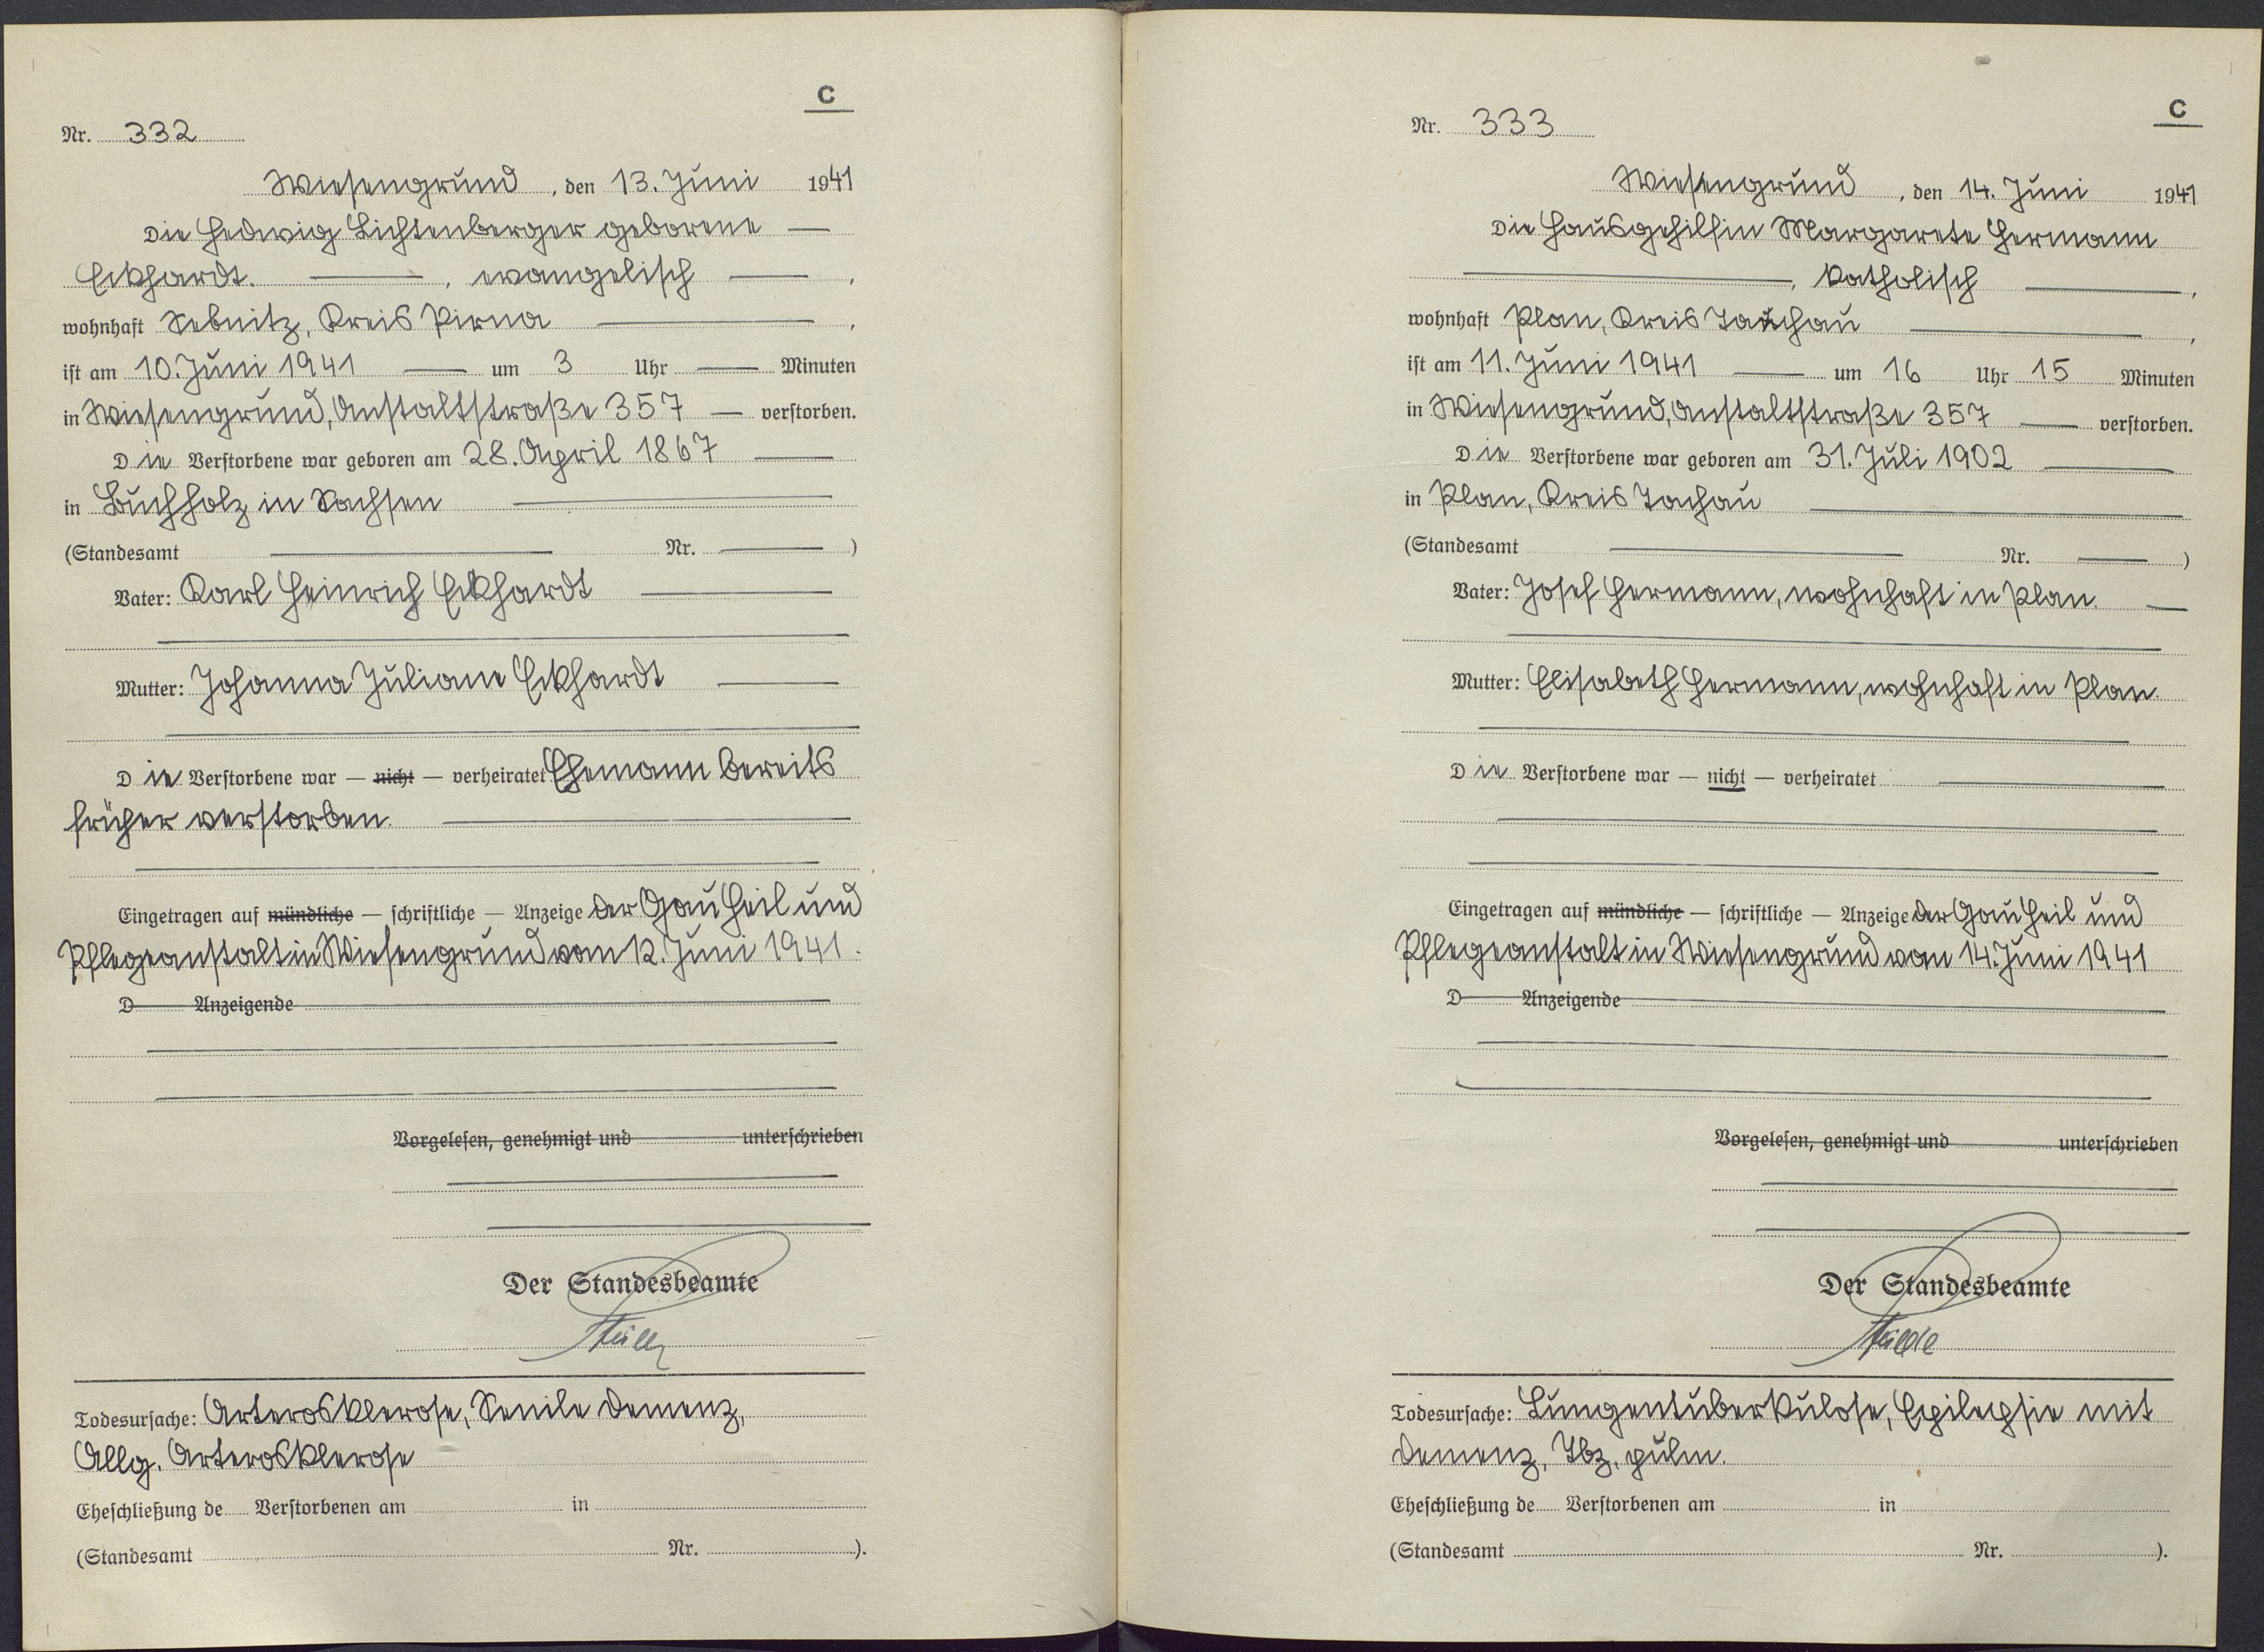 C
Nr. 332
Wiesengrund, den 13. Juni 1941
Die Hedwig Lichtenberger geborene —
Eckhardt. —, evangelisch —,
wohnhaft Sebnitz, Kreis Pirna —,
ist am 10. Juni 1941 — um 3 Uhr — Minuten
in Wiesengrund, Anstaltstraße 357 — verstorben.
Die Verstorbene war geboren am 28. April 1867 —
in Buchholz in Sachsen —
(Standesamt — Nr. —)
Vater: Karl Heinrich Eckhardt —
Mutter: Johanna Juliane Eckhardt —
Die Verstorbene war — nicht — verheiratet Ehemann bereits
früher verstorben. —
Eingetragen auf mündliche — schriftliche — Anzeige der Gau Heil und
Pflegeanstalt in Wiesengrund vom 12. Juni 1941.
D Anzeigende
Vorgelesen, genehmigt und unterschrieben
Der Standesbeamte
Todesursache: Arterosklerose, Senile Demenz,
Allg. Arterosklerose
Eheschließung de Verstorbenen am in
(Standesamt Nr. ).
C
Nr. 333
Wiesengrund, den 14. Juni 1941
Die Hausgehilfin Margarete Hermann
—, katholisch —,
wohnhaft Plan, Kreis Tachau —,
ist am 11. Juni 1941 — um 16 Uhr 15 Minuten
in Wiesengrund, Anstaltstraße 357 — verstorben.
Die Verstorbene war geboren am 31. Juli 1902 —
in Plan, Kreis Tachau —
(Standesamt — Nr. —)
Vater: Josef Hermann, wohnhaft in Plan. —
Mutter: Elisabeth Hermann, wohnhaft in Plan.
Die Verstorbene war — nicht — verheiratet —
Eingetragen auf mündliche — schriftliche — Anzeige der Gau Heil und
Pflegeanstalt in Wiesengrund vom 14. Juni 1941
D Anzeigende
Vorgelesen, genehmigt und unterschrieben
Der Standesbeamte
Todesursache: Lungentuberkulose, Epilepsie mit
Demenz, Tbz. pulm.
Eheschließung de Verstorbenen am in
(Standesamt Nr. ).